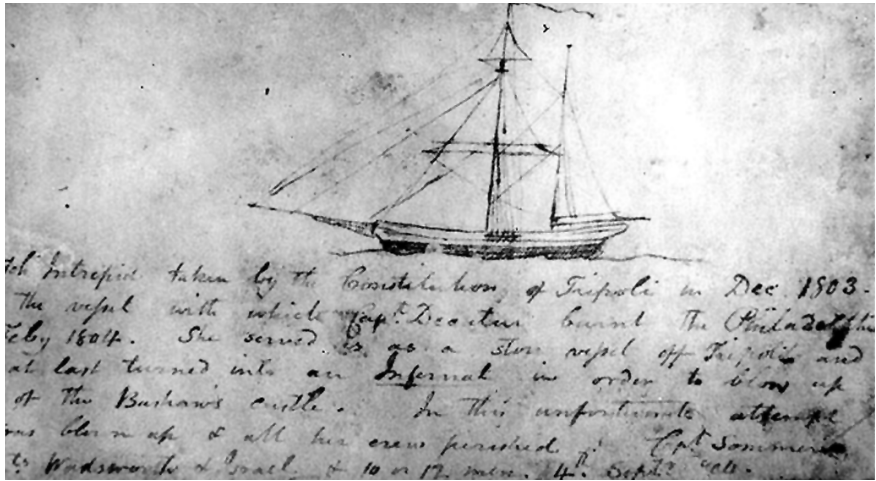 Intrepid taken by the Constitution, off Tripoli in Dec 1803.
the vessel with which Capt. Decatur burnt the Philadelphia
Feby 1804. She served as a store vessel off Tripoli and
at last turned into an Infernal in order to blow up
of the Bashaws castle. In this unfortunate attempt
blown up & all her crew perished. Capt Sommers
Wadsworth & Israel & 10 or 12 men. 4th Sept.